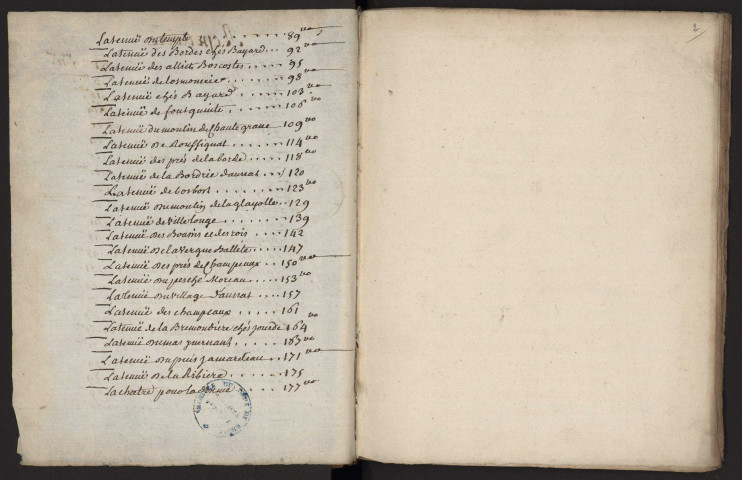 La tenuë du temple . . . . . 89 vo
La tenuë des Bordes chés Bayard . . . 92 vo
La tenuë des alliets Boscostes . . . . 95
La tenuë de losmonerie . . . . . 98 vo
La tenuë chés Bayard . . . . . 103
La tenuë de fontqueinte . . . . 106 vo
La tenuë du moulin de Chantegraue 109 vo
La tenuë de Rouffignat . . . . 114 vo
La tenuë des prés de la borde . . . . 118 vo
La tenuë de la Bordrie d'aurat . . . 120
La tenuë de bosbost . . . . . 123 vo
La tenuë du moulin de la glayolle . . 129
La tenuë de Ville longe . . . . . 139
La tenuë des Bouins et des rois . . . . 142
La tenuë de la Vergne Ballete . . . . 147
La tenuë des prés de Champeaux . . 150 vo
La tenuë du perché Moreau . . . . 153 vo
La tenuë du village d'aurat . . . . 157
La tenuë des champeaux . . . . 161
La tenuë de la Bremondiere chés jourde 164 vo
La tenuë du mas . . . . 163 vo
La tenuë du puis jamardeau . . . . 171 vo
La tenuë de la Ribiere . . . . 175
La chatre pour la . . . . 177 vo
2